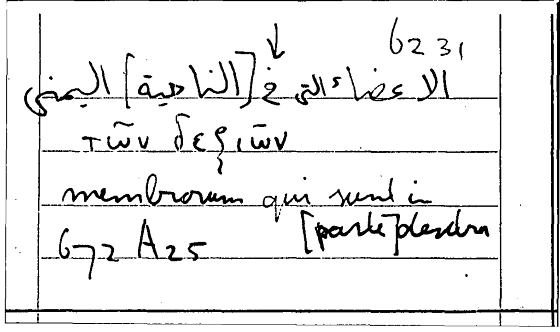 6231
الاعضاء التى فى [الناحية] اليمنى
τῶν δεξιῶν
membrorum qui sunt in
[parte] dextra
672 A25